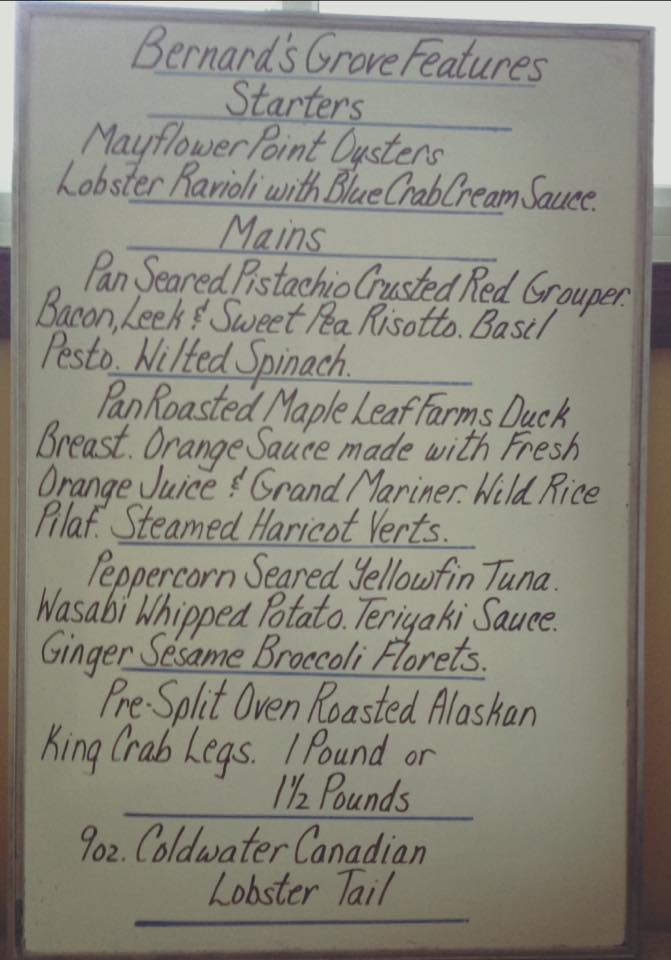 Bernard's Grove Features
Starters
Mayflower Point Oysters
Lobster Ravioli with Blue Crab Cream Sauce.
Mains
Pan Seared Pistachio Crusted Red Grouper.
Bacon, Leek & Sweet Pea Risotto. Basil
Pesto. Wilted Spinach.
Pan Roasted Maple Leaf Farms Duck
Breast. Orange Sauce made with Fresh
Orange Juice & Grand Mariner. Wild Rice
Pilaf. Steamed Haricot Verts.
Peppercorn Seared Yellowfin Tuna.
Wasabi Whipped Potato. Teriyaki Sauce.
Ginger Sesame Broccoli Florets.
Pre-Split Oven Roasted Alaskan
King Crab Legs. 1 Pound or
1½ Pounds
9oz. Coldwater Canadian
Lobster Tail